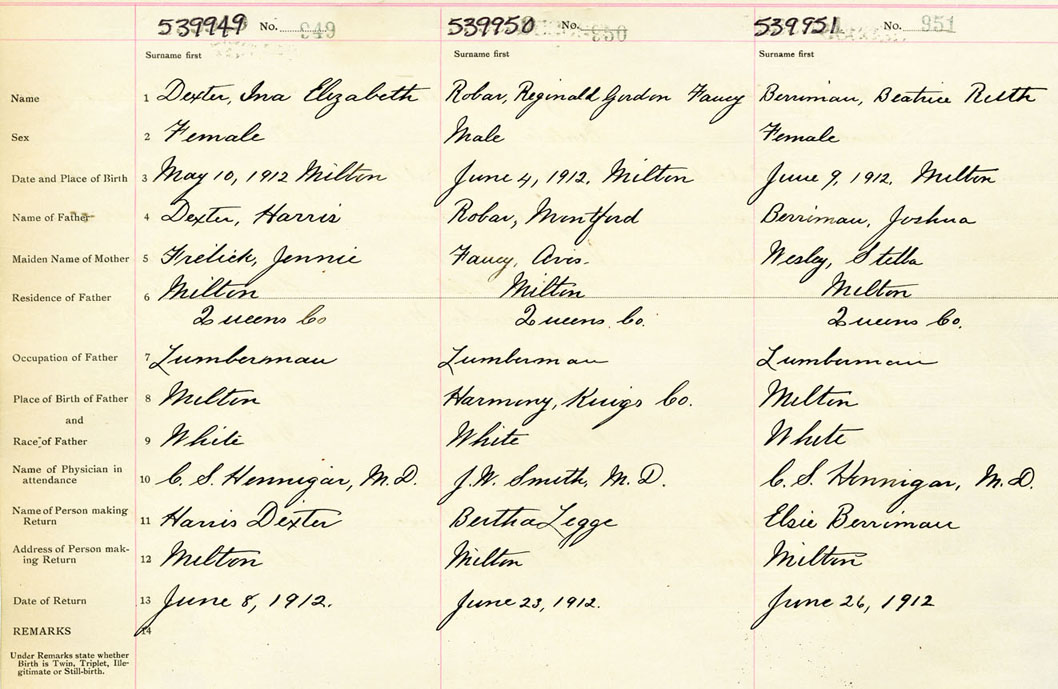 539949 No. 949 539950 No. 950 539951 No. 951
Surname first Surname first Surname first
Name 1 Dexter, Ina Elizabeth Robar, Reginald Gordon Faucy Berriman, Beatrice Ruth
Sex 2 Female Male Female
Date and Place of Birth 3 May 10, 1912 Milton June 4, 1912. Milton June 9, 1912. Milton
Name of Father 4 Dexter, Harris Robar, Montford Berriman, Joshua
Maiden Name of Mother 5 Frelick, Jennie Faucy, Avis. Wesley, Stella
Residence of Father 6 Milton Milton Milton
Queens Co Queens Co. Queens Co.
Occupation of Father 7 Lumberman Lumberman Lumberman
Place of Birth of Father 8 Milton Harmony, Kings Co. Milton
and
Race of Father 9 White White White
Name of Physician in
attendance 10 C. S. Hennigar, M.D. J.W. Smith, M.D. C. S. Hennigar, M.D.
Name of Person making
Return 11 Harris Dexter Bertha Legge Elsie Berriman
Address of Person mak-
ing Return 12 Milton Milton Milton
Date of Return 13 June 8, 1912. June 23, 1912. June 26, 1912
REMARKS 14
Under Remarks state whether
Birth is Twin, Triplet, Ille-
gitimate or Still-birth.